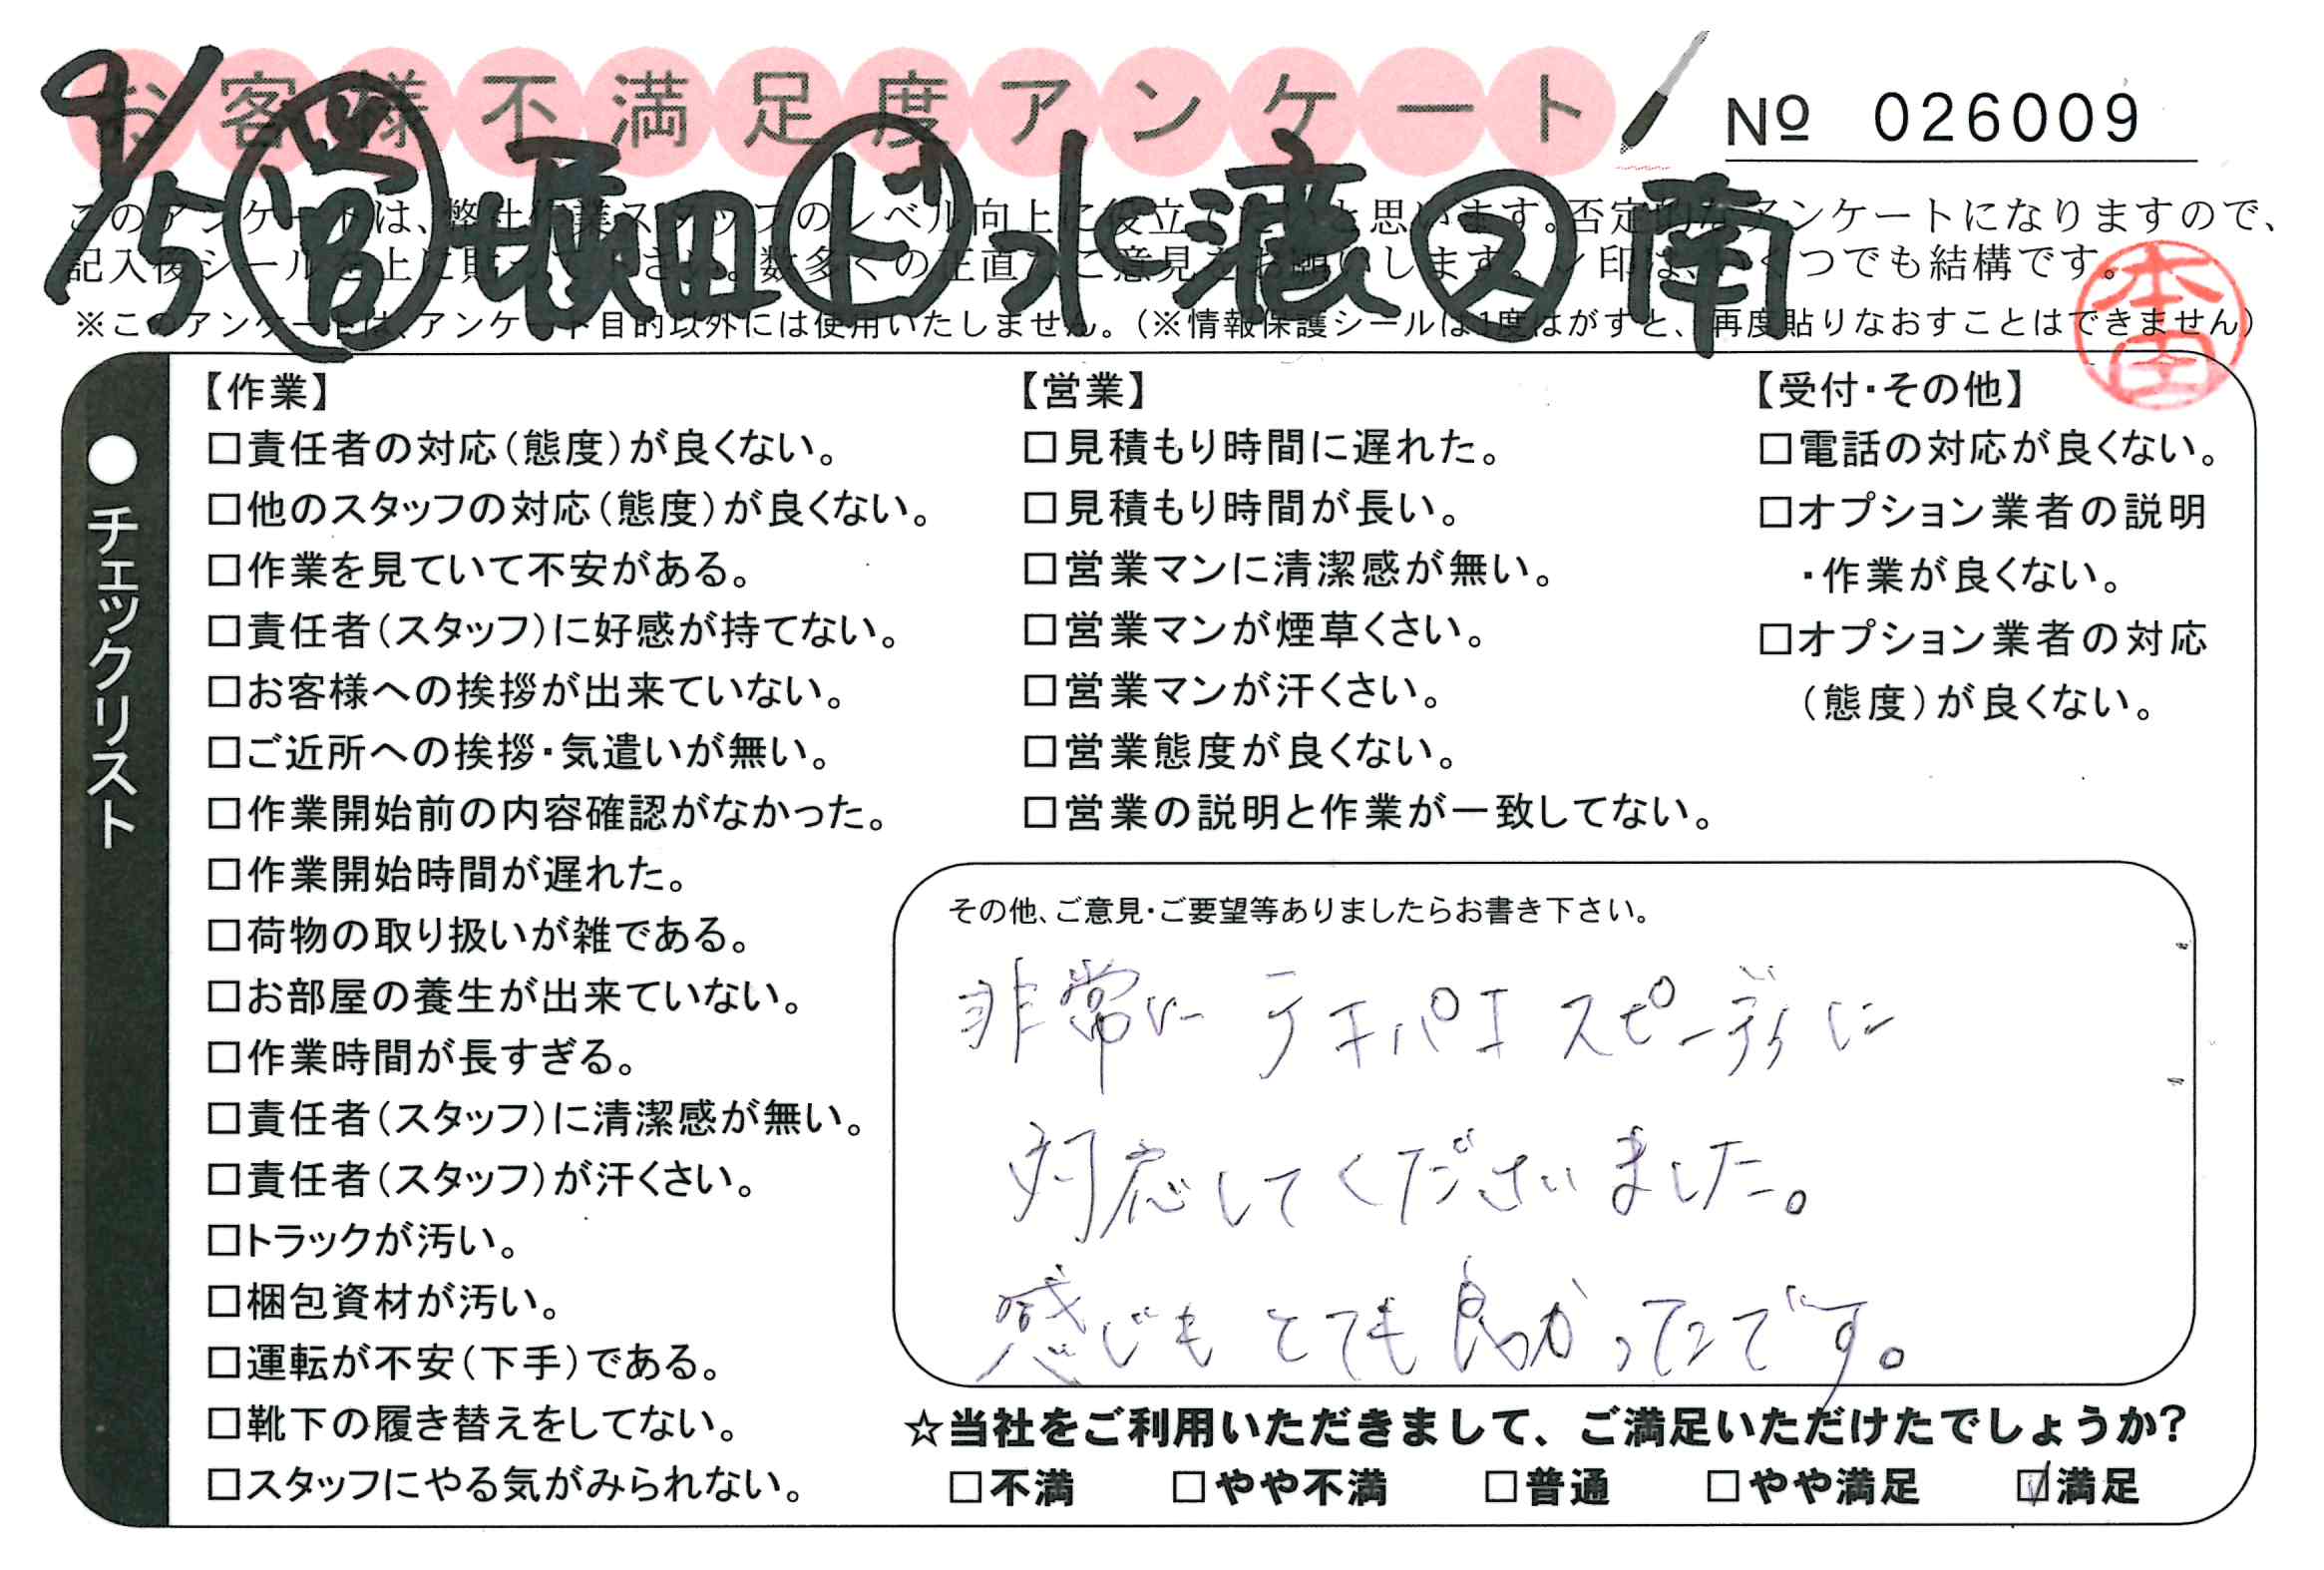 お客様不満足度アンケート
Nº 026009
9/5 営 堀田 ド 水漉 ス 南
このアンケートは、弊社作業スタッフのレベル向上に役立てたいと思います。否定的なアンケートになりますので、
記入後シールを上に貼ってください。数多くの正直なご意見をお願いします。レ印は、いくつでも結構です。
※このアンケートは、アンケート目的以外には使用いたしません。(※情報保護シールは1度はがすと、再度貼りなおすことはできません)
本田
●チェックリスト
【作業】
□責任者の対応(態度)が良くない。
□他のスタッフの対応(態度)が良くない。
□作業を見ていて不安がある。
□責任者(スタッフ)に好感が持てない。
□お客様への挨拶が出来ていない。
□ご近所への挨拶・気遣いが無い。
□作業開始前の内容確認がなかった。
□作業開始時間が遅れた。
□荷物の取り扱いが雑である。
□お部屋の養生が出来ていない。
□作業時間が長すぎる。
□責任者(スタッフ)に清潔感が無い。
□責任者(スタッフ)が汗くさい。
□トラックが汚い。
□梱包資材が汚い。
□運転が不安(下手)である。
□靴下の履き替えをしてない。
□スタッフにやる気がみられない。
【営業】
□見積もり時間に遅れた。
□見積もり時間が長い。
□営業マンに清潔感が無い。
□営業マンが煙草くさい。
□営業マンが汗くさい。
□営業態度が良くない。
□営業の説明と作業が一致してない。
【受付・その他】
□電話の対応が良くない。
□オプション業者の説明
・作業が良くない。
□オプション業者の対応
(態度)が良くない。
その他、ご意見・ご要望等ありましたらお書き下さい。
非常に テキパキ スピーディに
対応してくださいました。
感じも とても 良かったです。
☆当社をご利用いただきまして、ご満足いただけたでしょうか?
□不満 □やや不満 □普通 □やや満足 ☑満足